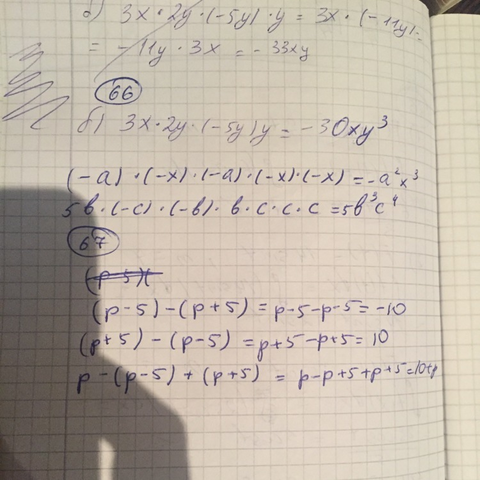 б) 3x·2y·(-5y)·y = 3x·(-11y)=
= -11y·3x = -33xy
66
б) 3x·2y·(-5y)y = -30xy³
(-a)·(-x)·(-a)·(-x)·(-x) = -a²x³
5b·(-c)·(-b)·b·c·c·c = 5b³c⁴
67
(p-5)(
(p-5)-(p+5) = p-5-p-5 = -10
(p+5)-(p-5) = p+5-p+5 = 10
p-(p-5)+(p+5) = p-p+5+p+5=10+p